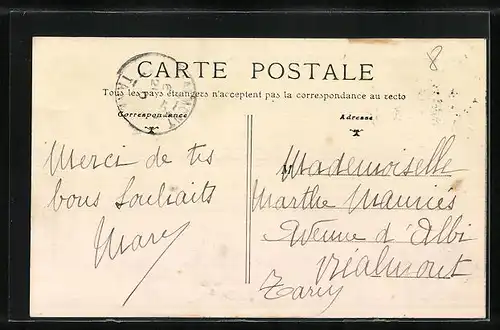 8
CARTE POSTALE
Tous les pays étrangers n'acceptent pas la correspondance au recto
Correspondance
Adresse
Merci de tes
bons souhaits
Mary
M
Mademoiselle
Marthe
Avenue d'Albi
Réalmont
Tarn